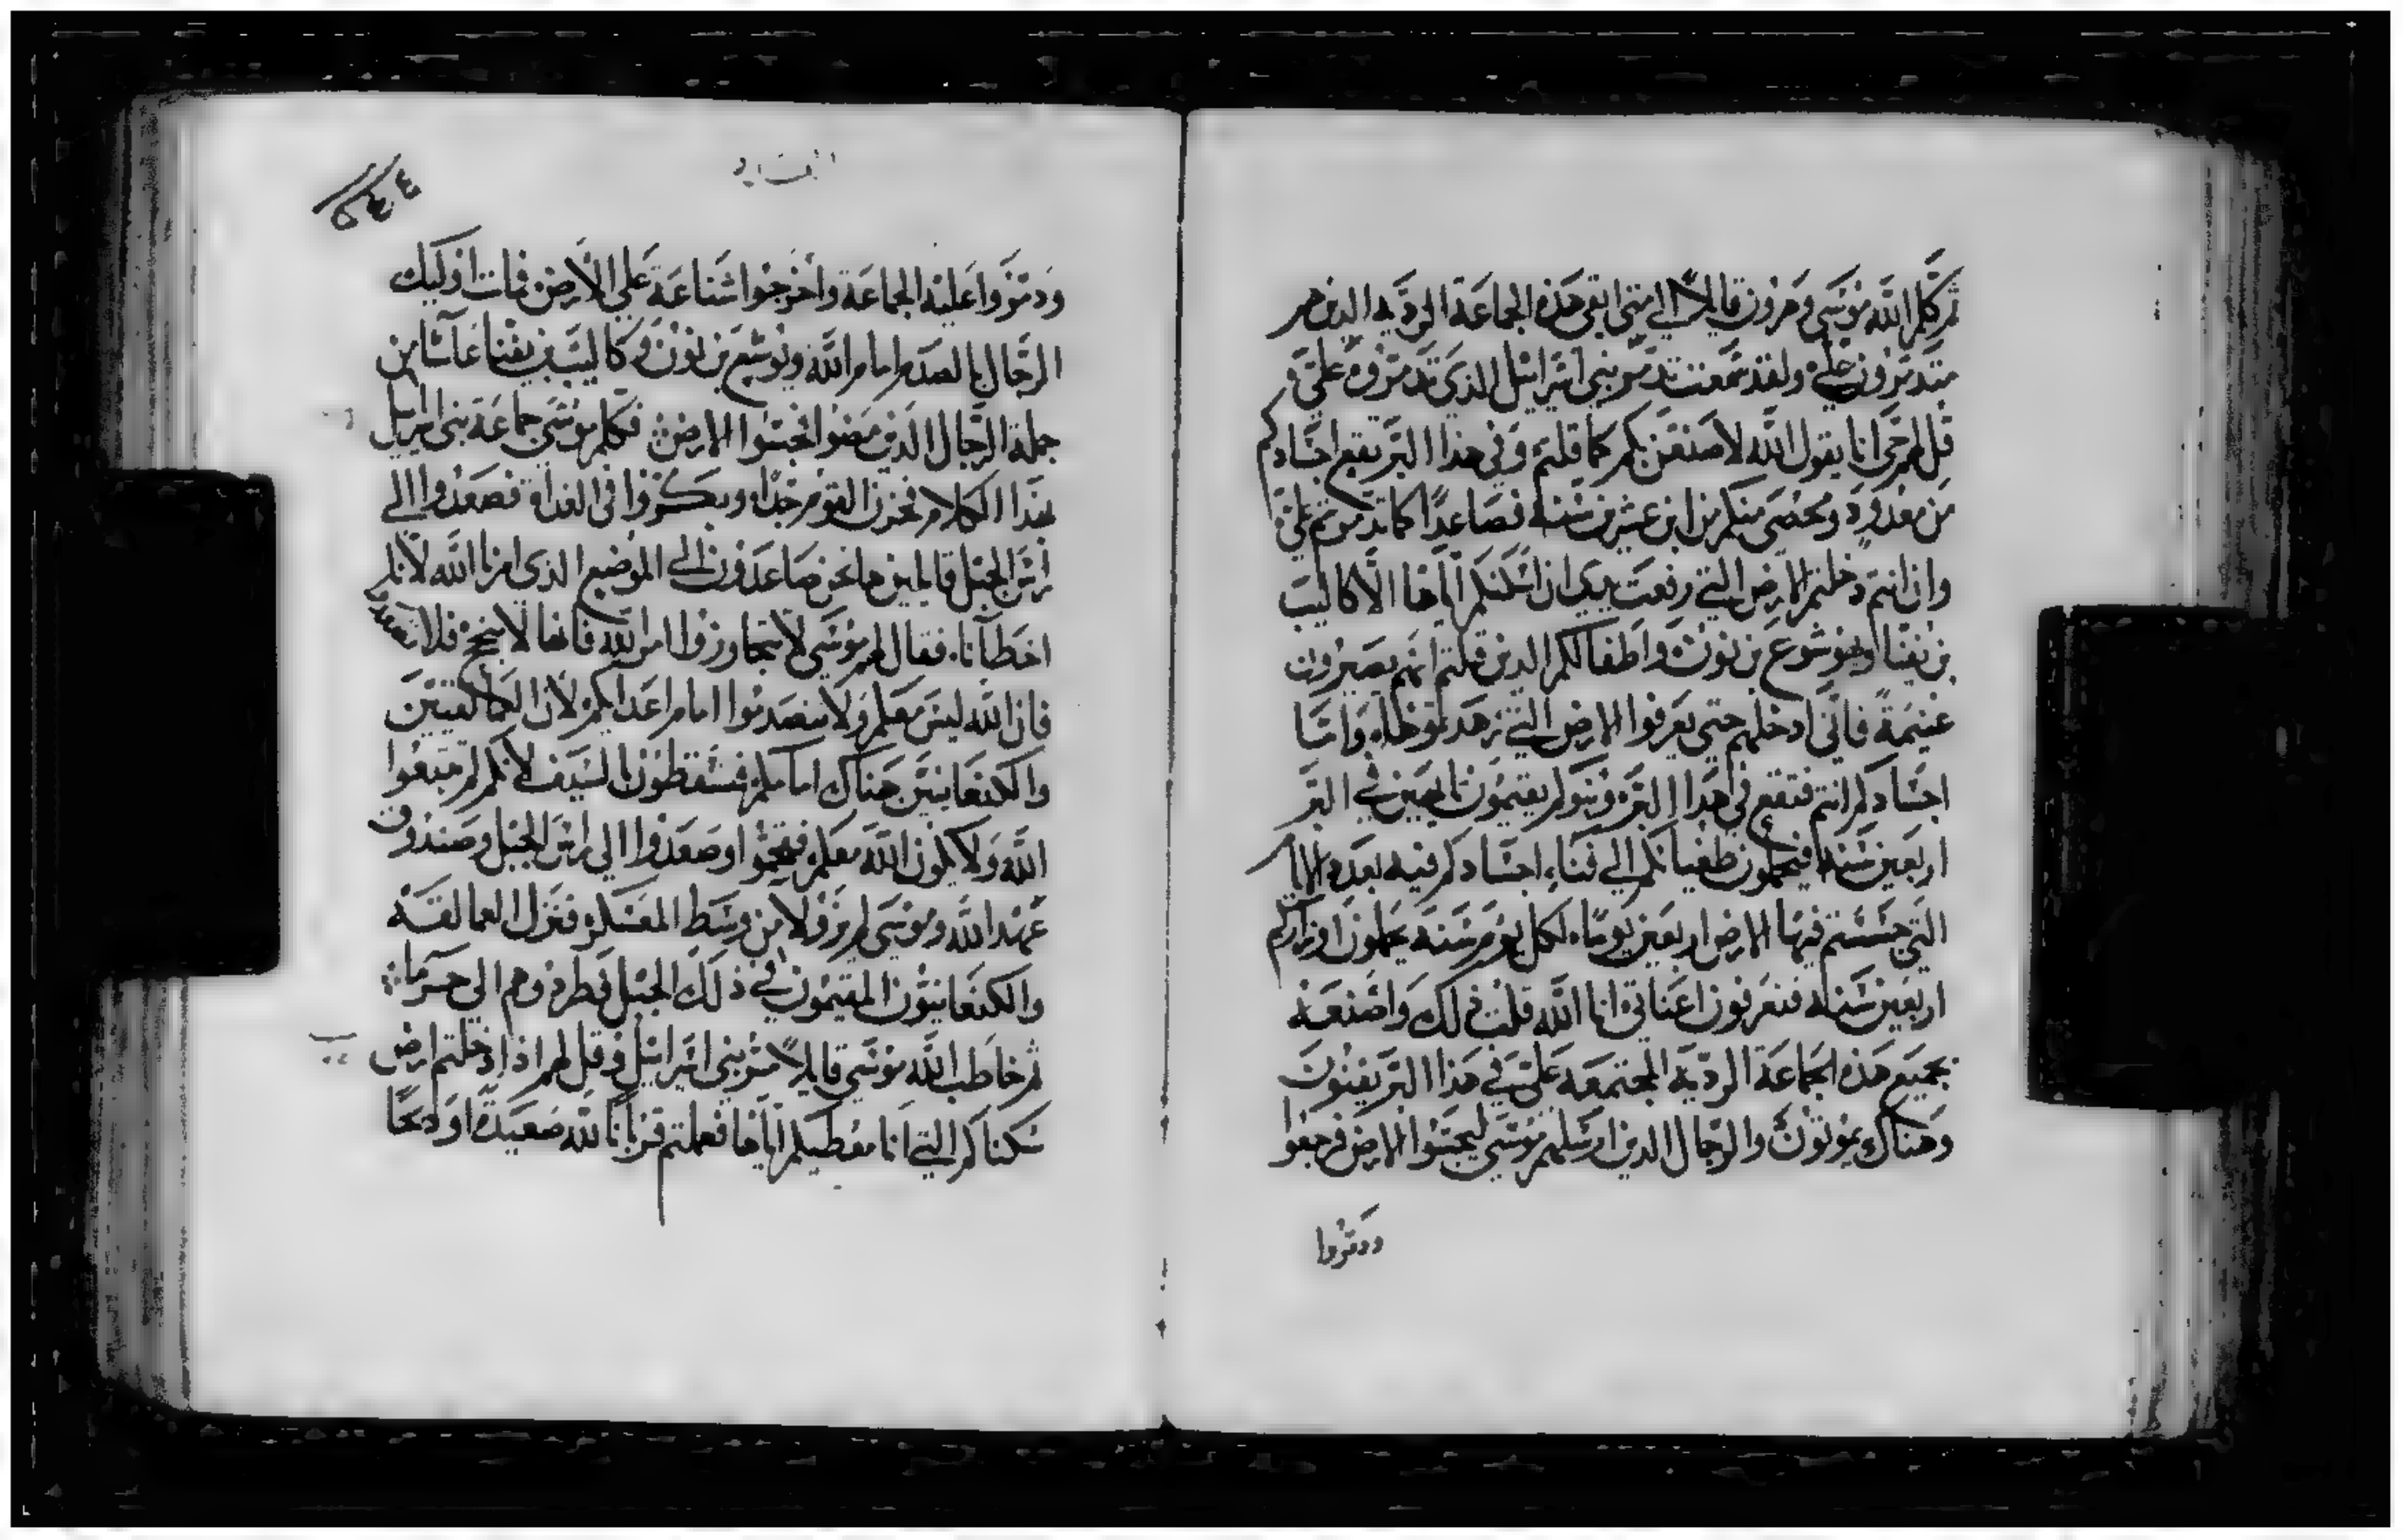 ثم كلم الله موسى وهرون قايلًا الي متي ابقي هذه الجماعة الرديه الذين هم
متدمرون علي ولقد سمعت تدمر بني اسرائيل الذي تدمروه علي و
قل لهم حي انا يقول الله لاصنعن بكم كما قلتم وفي هذا البر يقع اجسادكم
من معدود ومحصى منكم من ابن عشرين سنه فصاعدًا كما تدمرتم علي
وان انتم دخلتم الارض التي رفعت يدي ان اسكنكم اياها الا كاليب
بن يفنا ويوشوع بن نون واطفالكم الدين قلتم انهم يصيرون
غنيمة فاني ادخلهم حتي يعرفوا الارض التي زهدتموها وامّا
اجسادكم انتم فتقع في هذا البر وبنوكم يقيمون تايهين في البر
اربعين سنه فيحملون طغيانكم الي فناء اجسادكم فيه بعدد الايام
التي جسستم فيها الارض اربعين يومًا لكل يوم سنه يحملون اوزاركم
اربعين سنه فتعرفون اعناتي انا الله قلت ذلك واصنعه
بجميع هذه الجماعة الرديه المجتمعه علي في هذا البر يفنون
وهناك يموتون والرجال الدين ارسلهم موسى ليجسوا الارض فرجعوا
ودمروا
ودمروا عليه الجماعة واخرجوا شناعة علي الارض فمات اوليك
الرجال بالصدم امام الله ويوشع بن نون وكاليب بن يفنا عاشا من
جملة الرجال الدين مضوا لجسوا الارض فكلم موسى جماعة بني اسرايل
بهذا الكلام فحزن القوم جدا وبكروا في الغداة فصعدوا الي
راس الجبل قايلين ها نحن صاعدون الي الموضع الذي امرنا الله لانا
اخطأنا فقال لهم موسى لا تتجاوزوا امر الله فانها لا تنجح فلا تصعدوا
فان الله ليس معكم ولا تنصدموا امام اعدايكم لان العمالقيين
والكنعانيين هناك امامكم فتسقطون بالسيف لانكم لم تتبعوا
الله ولا يكون الله معكم وصعدوا الي راس الجبل وصندوق
عهد الله وموسى لم يزولا من وسط المعسكر فنزل العمالقه
والكنعانيون المقيمون في ذلك الجبل فطردوهم الي حرما
ثم خاطب الله موسى قايلًا مر بني اسرائيل وقل لهم اذا دخلتم ارض
سكناكم التي انا معطيكم اياها فعملتم قربانا لله صعيدة او دبحًا